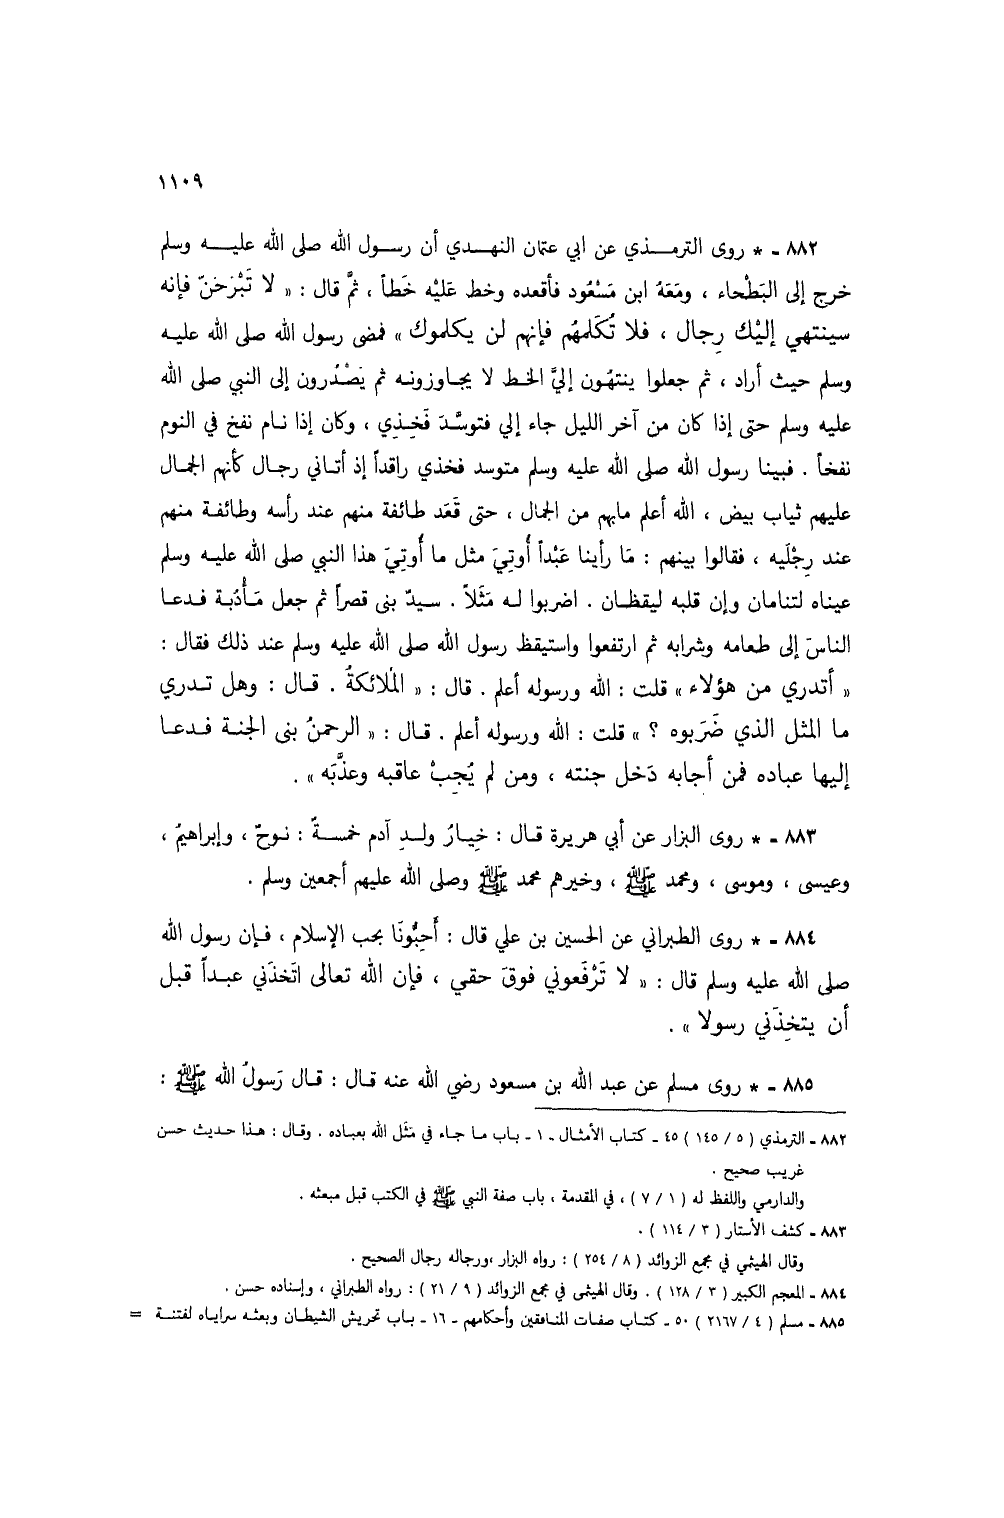 ١١٠٩
٨٨٢ - * روى الترمـذي عن ابي عثمان النهـدي أن رسـول الله صلى الله عليـه وسلم
خرج إلى البَطْحاء ، ومَعَهُ ابن مَسْعُود فأقعده وخط عَليْه خَطاً ، ثمَّ قال : « لا تَبْرَحَنّ فإنه
سينتهي إليْك رِجال ، فلا تُكَلمهُم فإنهم لن يكلموك » فمضى رسول الله صلى الله عليـه
وسلم حيث أراد ، ثم جعلوا ينتهُون إليَّ الخط لا يجـاوزونـه ثم يَصْدُرون إلى النبي صلى الله
عليه وسلم حتى إذا كان من آخر الليل جاء إلي فتوسَّـدَ فَخِـذِي ، وكان إذا نـام نفخ في النوم
نفخاً . فبينا رسول الله صلى الله عليه وسلم متوسد فخذي راقداً إذ أتـاني رجـال كأنهم الجمال
عليهم ثياب بيض ، الله أعلم مابهم من الجمال ، حتى قَعَد طائفة منهم عند رأسه وطائفـة منهم
عند رِجْلَيه ، فقالوا بينهم : مَا رأينا عَبْداً أُوتِيَ مثل ما أُوتِيَ هذا النبي صلى الله عليـه وسلم
عيناه لتنامان وإن قلبه ليقظـان . اضربوا لـه مَثَلاً . سيـدّ بنى قصراً ثم جعل مَـأْدُبـة فـدعـا
الناسَ إلى طعامه وشرابه ثم ارتفعوا واستيقظ رسول الله صلى الله عليه وسلم عند ذلك فقال :
« أتدري من هؤلاء » قلت : الله ورسوله أعلم . قال : « الْملائكةُ . قـال : وهل تـدري
ما المثل الذي ضَرَبوه ؟ » قلت : الله ورسوله أعلم . قـال : « الرحمنُ بنى الجنـة فـدعـا
إليها عباده فمن أجابه دَخل جنته ، ومن لم يُجِبْ عاقبه وعذَّبَه » .
٨٨٣ - * روى البزار عن أبي هريرة قال : خِيـارُ ولـدِ آدم خمسـةٌ : نـوحٌ ، وإبراهيمُ ،
وعيسى ، وموسى ، ومحمد ﷺ ، وخيرهم محمد ﷺ وصلى الله عليهم أجمعين وسلم .
٨٨٤ - * روى الطبراني عن الحسين بن علي قال : أَحِبُّونَا بحب الإسلام ، فـإن رسول الله
صلى الله عليه وسلم قال : « لا تَرْفَعوني فوقَ حقي ، فإن الله تعالى اتَخذَني عبـداً قبل
أن يتخِذَني رسولا » .
٨٨٥ - * روى مسلم عن عبد الله بن مسعود رضي الله عنه قـال : قـال رَسولُ الله ﷺ :
٨٨٢ - الترمذي ( ٥ / ١٤٥ ) ٤٥ - كتاب الأمثـال - ١ - بـاب مـا جـاء في مَثَل الله بعباده . وقـال : هـذا حـديث حسن
غريب صحيح .
والدارمي واللفظ له ( ١ / ٧ ) ، في المقدمة ، باب صفة النبي ﷺ في الكتب قبل مبعثه .
٨٨٣ - كشف الأستار ( ٣ / ١١٤ ) .
وقال الهيثمي في مجمع الزوائد ( ٨ / ٢٥٤ ) : رواه البزار ،ورجاله رجال الصحيح .
٨٨٤ - المعجم الكبير ( ٣ / ١٢٨ ) . وقال الهيثمى في مجمع الزوائد ( ٩ / ٢١ ) : رواه الطبراني ، وإسناده حسن .
٨٨٥ - مسلم ( ٤ / ٢١٦٧ ) ٥٠ - كتـاب صفـات المنـافقين وأحكامهم - ١٦ - بـاب تحريش الشيطـان وبعثـه سرايـاه لفتنـة =